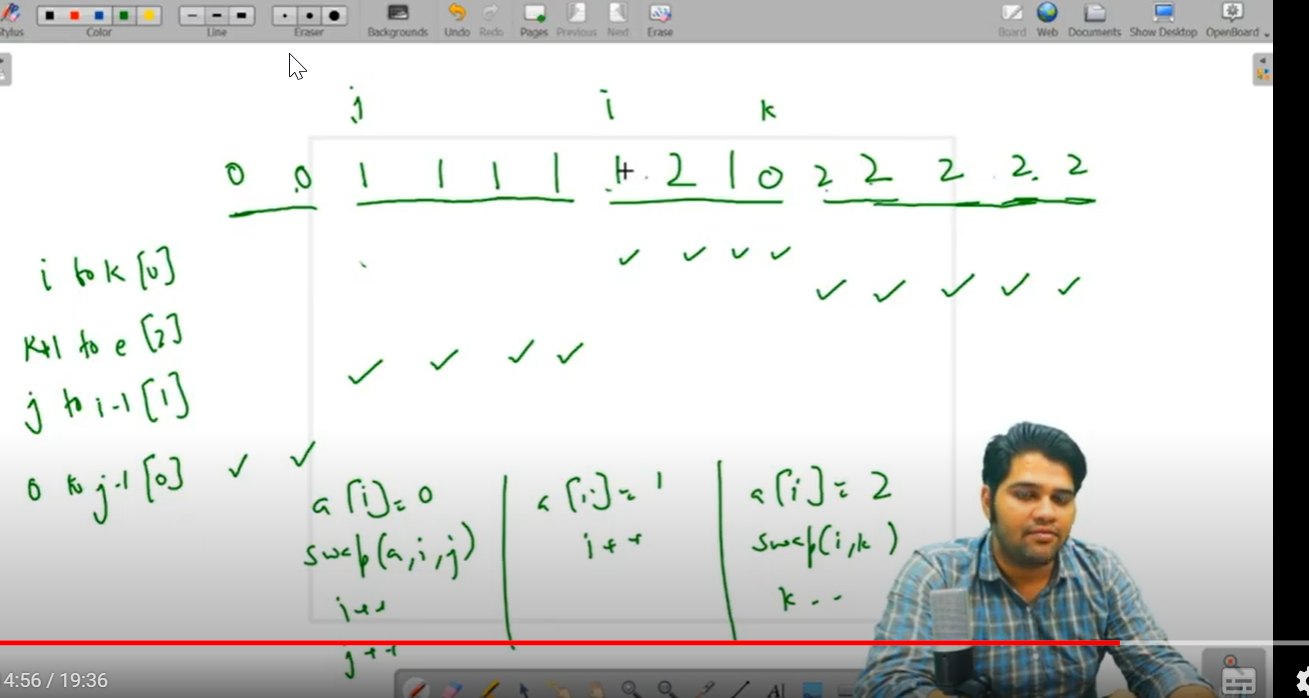 Stylus Color Line Eraser Backgrounds Undo Redo Pages Previous Next Erase Board Web Documents Show Desktop OpenBoard
j i k
0 0 1 1 1 1 1 2 1 0 2 2 2 2 2
i to k [0]
k+1 to e [2]
j to i-1 [1]
0 to j-1 [0]
a[i]=0
swap(a,i,j)
i++
j++
a[i]=1
i++
a[i]=2
swap(i,k)
k--
4:56 / 19:36